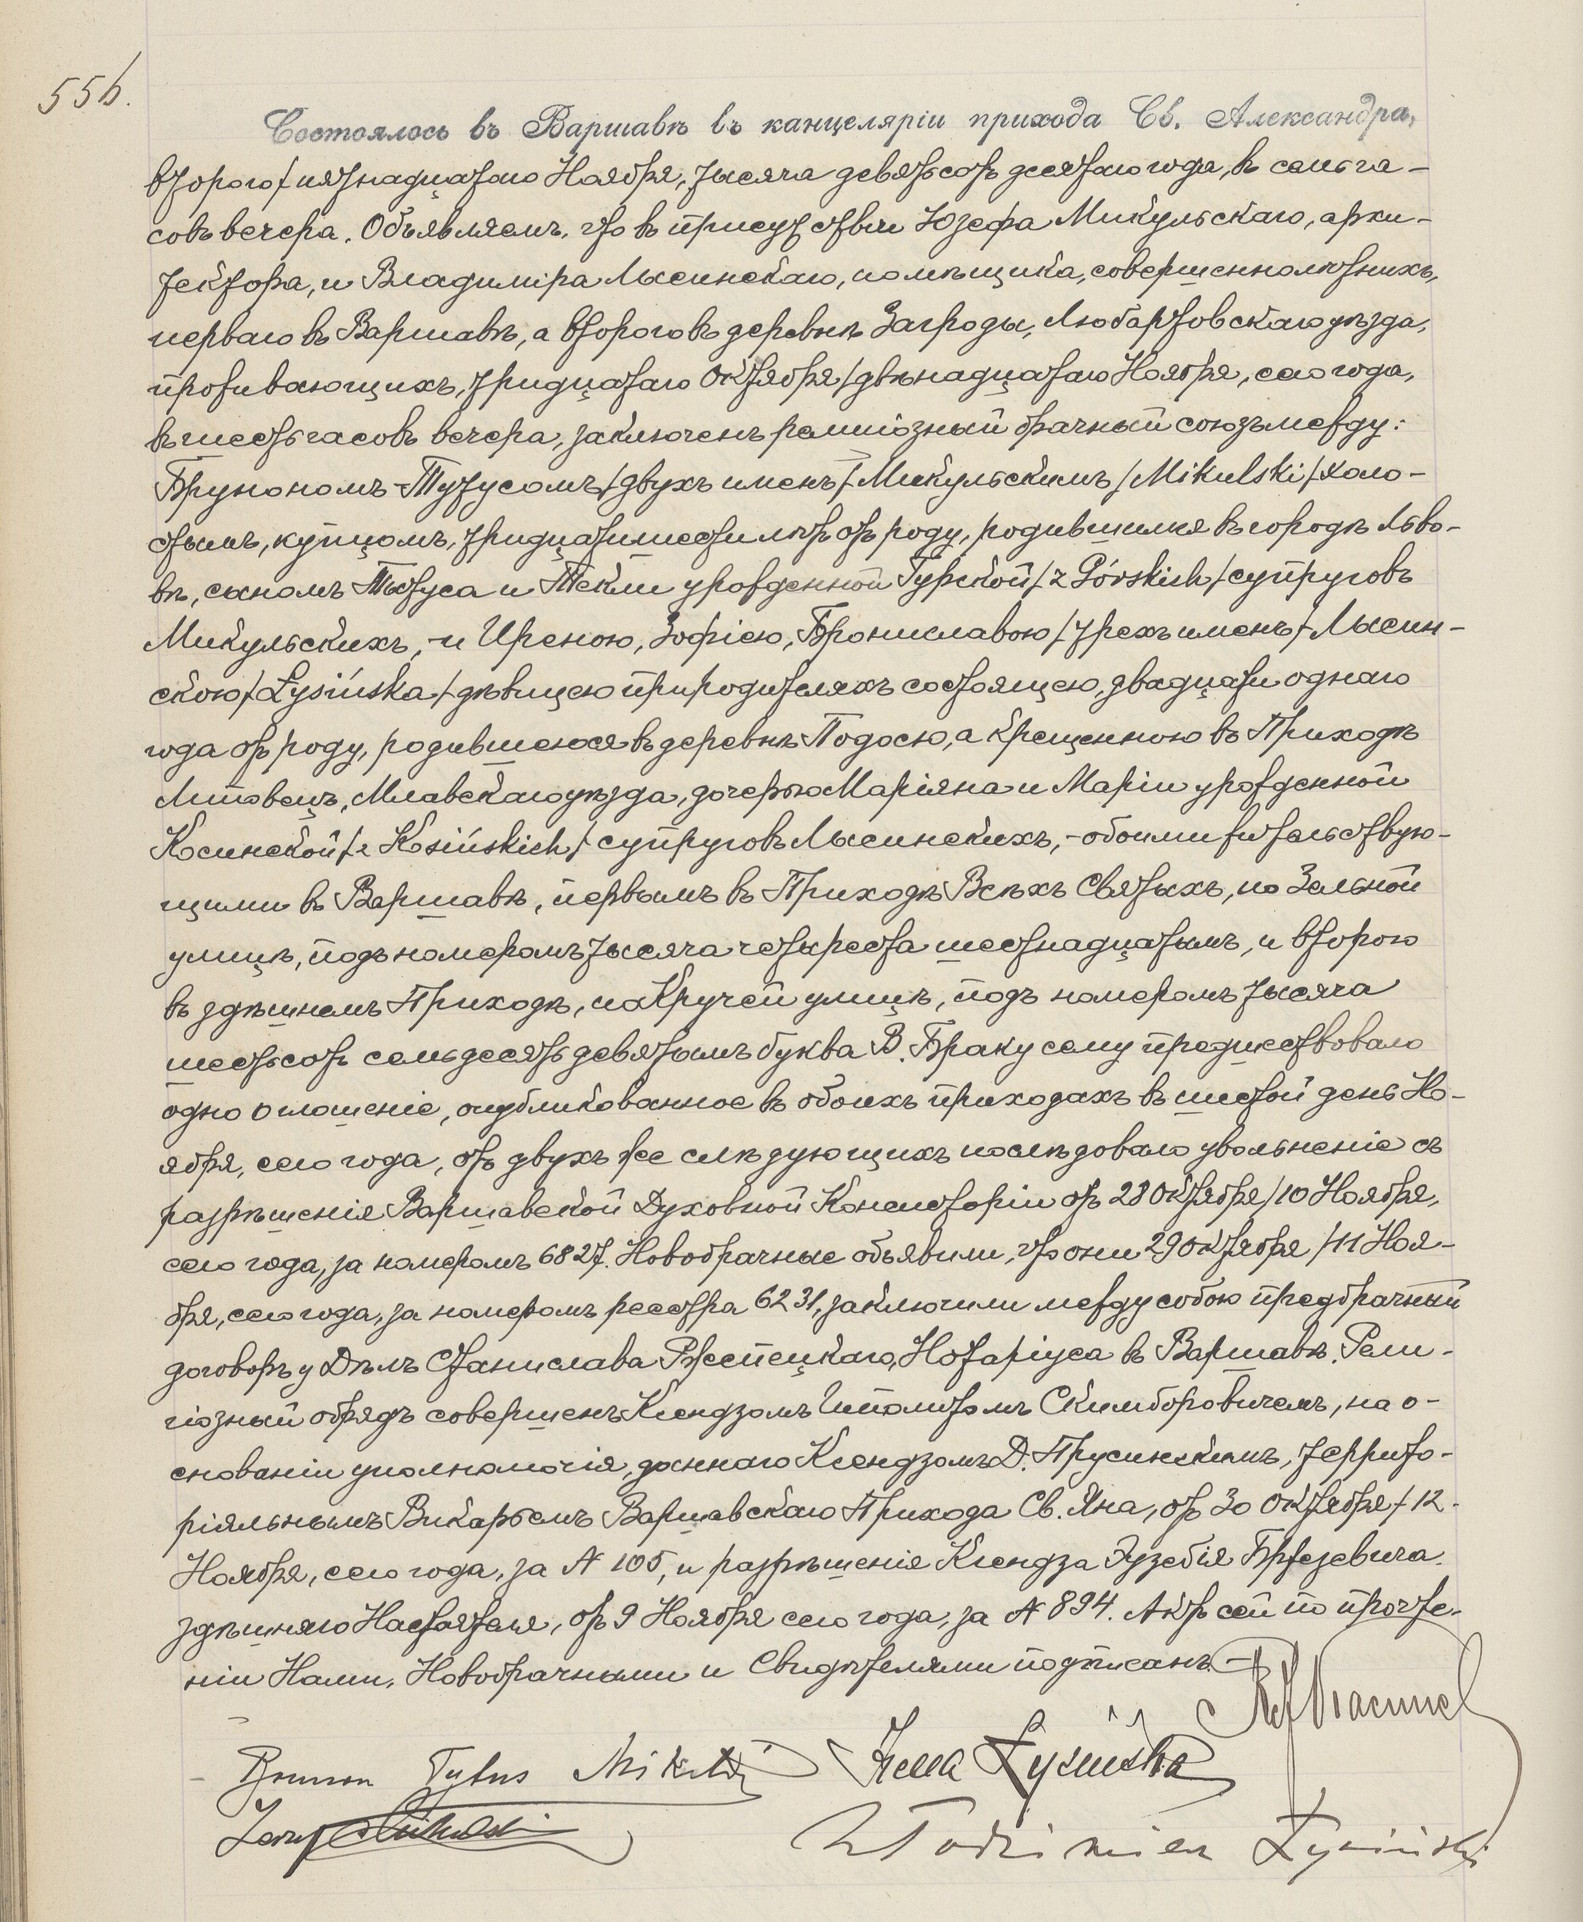 556.
Состоялось въ Варшавѣ въ канцеляріи прихода Св. Александра,
второго/пятнадцатаго Ноября, тысяча девятьсотъ десятаго года, въ семь ча-
совъ вечера. Объявляемъ, что въ присутствіи Юзефа Микульскаго, архи-
тектора, и Владиміра Лысинскаго, помѣщика, совершеннолѣтнихъ,
перваго въ Варшавѣ, а второго въ деревнѣ Загроды, Любартовскаго уѣзда,
проживающихъ, тридцатаго Октября/двѣнадцатаго Ноября, сего года,
въ шесть часовъ вечера, заключенъ религіозный брачный союзъ между:
Брунономъ-Титусомъ/двухъ именъ/Микульскимъ/Mikulski/холо-
стымъ, купцомъ, тридцати шести лѣтъ отъ роду, родившимся въ городѣ Льво-
вѣ, сыномъ Титуса и Текли урожденной Гурской/z Górskich/супруговъ
Микульскихъ,-и Иреною, Зофіею, Брониславою/трехъ именъ/Лысин-
скою/Łysińska/дѣвицею при родителяхъ состоящею, двадцати одного
года отъ роду, родившеюся въ деревнѣ Подосю, а крещенною въ Приходѣ
Липовецъ, Млавскаго уѣзда, дочерью Маріяна и Маріи урожденной
Косинской/z Kosińskich/супруговъ Лысинскихъ,-обоими жительствую-
щими въ Варшавѣ, первымъ въ Приходѣ Всѣхъ Святыхъ, по Зельной
улицѣ, подъ номеромъ тысяча четыреста шестнадцатымъ, и второю
въ здѣшнемъ Приходѣ, по Кручей улицѣ, подъ номеромъ тысяча
шестьсотъ семьдесятъ девятымъ буква В. Браку сему предшествовало
одно оглашеніе, опубликованное въ обоихъ приходахъ въ шестой день Но-
ября, сего года, отъ двухъ же слѣдующихъ послѣдовало увольненіе съ
разрѣшенія Варшавской Духовной Консисторіи отъ 28 Октября/10 Ноября,
сего года, за номеромъ 6827. Новобрачные объявили, что они 29 Октября/11 Ноя-
бря, сего года, за номеромъ реестра 6231, заключили между собою предбрачный
договоръ у Дѣлъ Станислава Ржепецкаго, Нотаріуса въ Варшавѣ. Рели-
гіозный обрядъ совершенъ Ксендзомъ Ипполитомъ Скимборовичемъ, на о-
снованіи уполномочія, даннаго Ксендзомъ Д. Прусинскимъ, террито-
ріяльнымъ Викарьемъ Варшавскаго Прихода Св. Яна, отъ 30 Октября/12
Ноября, сего года, за N 105, и разрѣшенія Ксендза Эузебія Брзезевича
здѣшняго Настоятеля, отъ 9 Ноября сего года, за N 894. Актъ сей по прочте-
ніи Нами, Новобрачными и Свидѣтелями подписанъ.-
Brunon Tytus Mikulski Irena Łysińska
Józef Mikulski Włodzimierz Łysiński